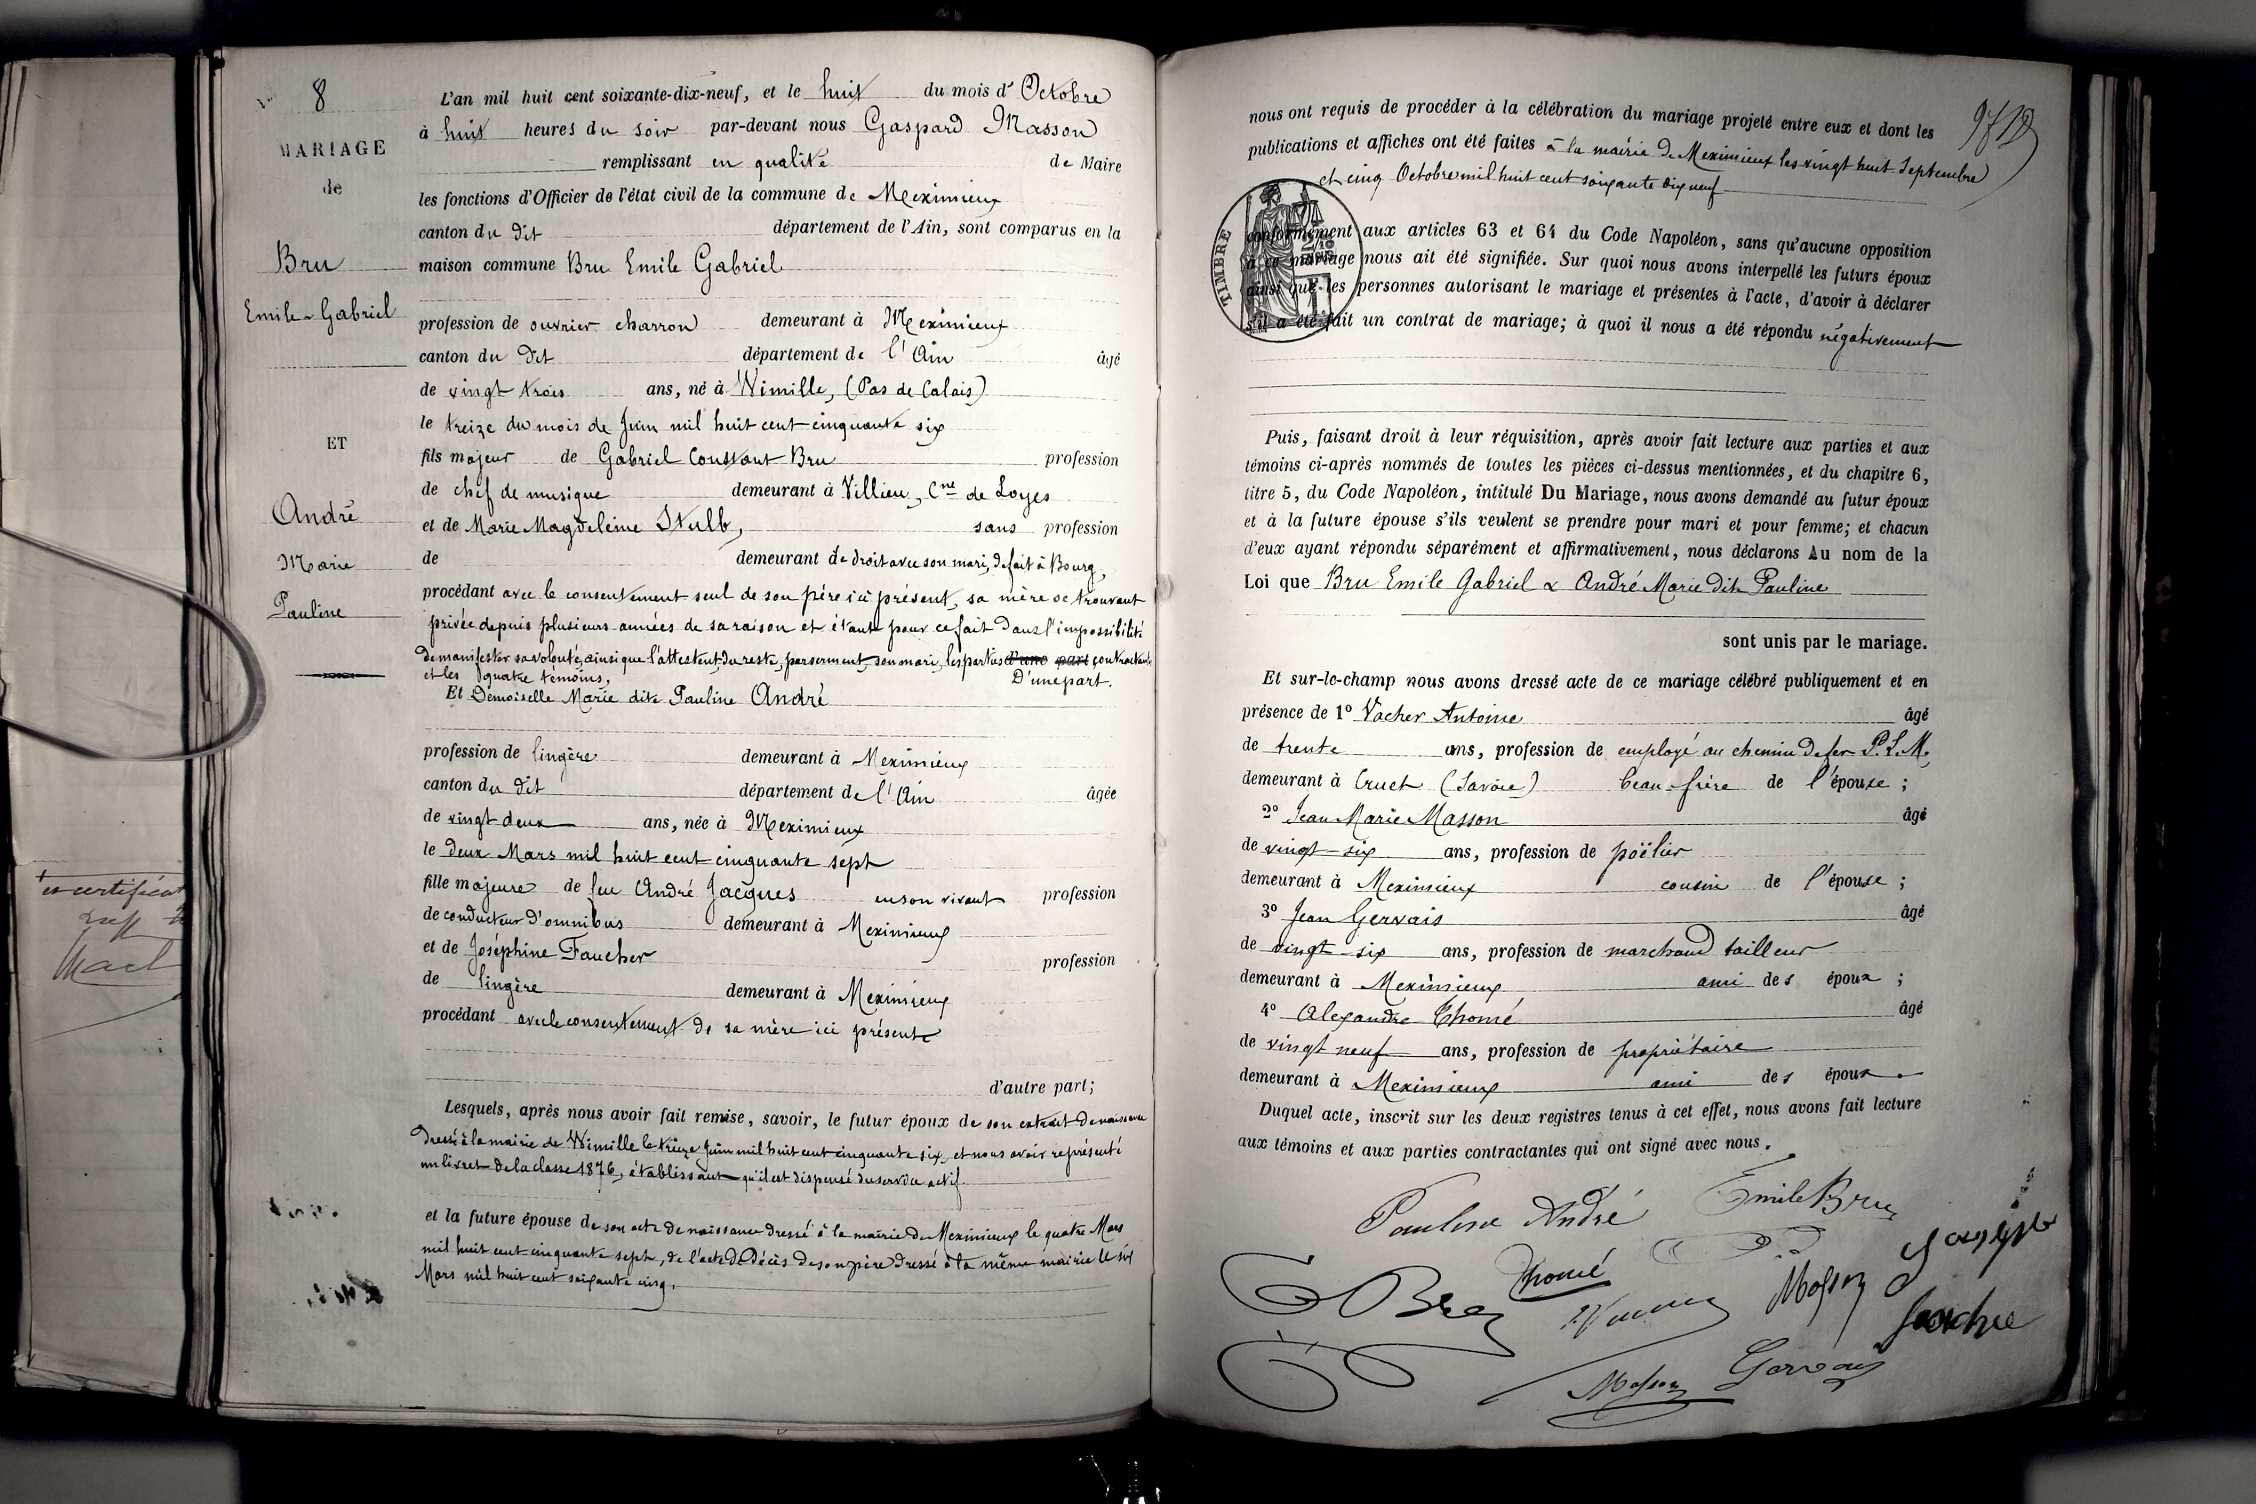 N° 8
MARIAGE
de
Bru
Emile-Gabriel
ET
André
Marie
Pauline
L'an mil huit cent soixante-dix-neuf, et le huit du mois d'Octobre
à huit heures du soir par-devant nous Gaspard Masson
remplissant en qualité de Maire
les fonctions d'Officier de l'état civil de la commune de Meximieux
canton du dit département de l'Ain, sont comparus en la
maison commune Bru Emile Gabriel
profession de ouvrier charron demeurant à Meximieux
canton du dit département de l'Ain âgé
de vingt trois ans, né à Wimille, (Pas de Calais)
le treize du mois de Juin mil huit cent cinquante six
fils majeur de Gabriel Constant Bru profession
de chef de musique demeurant à Villieu, Cne de Loyes
et de Marie Magdeleine Stulb, sans profession
de demeurant de droit avec son mari, de fait à Bourg,
procédant avec le consentement seul de son père ici présent, sa mère se trouvant
privée depuis plusieurs années de sa raison et étant pour ce fait dans l'impossibilité
de manifester sa volonté, ainsi que l'attestent, du reste, par serment, son mari, les parties d'une part contractantes
et les quatre témoins, D'une part.
Et Demoiselle Marie dite Pauline André
profession de lingère demeurant à Meximieux
canton du dit département de l'Ain âgée
de vingt deux ans, née à Meximieux
le deux Mars mil huit cent cinquante sept
fille majeure de feu André Jacques en son vivant profession
de conducteur d'omnibus demeurant à Meximieux
et de Joséphine Faucher profession
de lingère demeurant à Meximieux
procédant avec le consentement de sa mère ici présente
d'autre part;
Lesquels, après nous avoir fait remise, savoir, le futur époux de son extrait de naissance
dressé à la mairie de Wimille le treize Juin mil huit cent cinquante six, et nous avoir représenté
un livret de la classe 1876, établissant qu'il est dispensé du service actif
et la future épouse de son acte de naissance dressé à la mairie de Meximieux le quatre Mars
mil huit cent cinquante sept, de l'acte de décès de son père dressé à la même mairie le six
Mars mil huit cent soixante cinq.
nous ont requis de procéder à la célébration du mariage projeté entre eux et dont les
publications et affiches ont été faites à la mairie de Meximieux les vingt huit Septembre
et cinq Octobre mil huit cent soixante dix neuf
TIMBRE
conformément aux articles 63 et 64 du Code Napoléon, sans qu'aucune opposition
à ce mariage nous ait été signifiée. Sur quoi nous avons interpellé les futurs époux
ainsi que les personnes autorisant le mariage et présentes à l'acte, d'avoir à déclarer
s'il a été fait un contrat de mariage; à quoi il nous a été répondu négativement
Puis, faisant droit à leur réquisition, après avoir fait lecture aux parties et aux
témoins ci-après nommés de toutes les pièces ci-dessus mentionnées, et du chapitre 6,
titre 5, du Code Napoléon, intitulé Du Mariage, nous avons demandé au futur époux
et à la future épouse s'ils veulent se prendre pour mari et pour femme; et chacun
d'eux ayant répondu séparément et affirmativement, nous déclarons Au nom de la
Loi que Bru Emile Gabriel & André Marie dite Pauline
sont unis par le mariage.
Et sur-le-champ nous avons dressé acte de ce mariage célébré publiquement et en
présence de 1° Vacher Antoine âgé
de trente ans, profession de employé au chemin de fer P.L.M.
demeurant à Cruet (Savoie) beau-frère de l'épouse;
2° Jean Marie Masson âgé
de vingt-six ans, profession de poëlier
demeurant à Meximieux cousin de l'épouse;
3° Jean Gervais âgé
de vingt-six ans, profession de marchand tailleur
demeurant à Meximieux ami des époux;
4° Alexandre Thomé âgé
de vingt neuf ans, profession de propriétaire
demeurant à Meximieux ami des époux.
Duquel acte, inscrit sur les deux registres tenus à cet effet, nous avons fait lecture
aux témoins et aux parties contractantes qui ont signé avec nous.
Pauline André Emile Bru
Thomé
Bru Masson
Masson Gervais